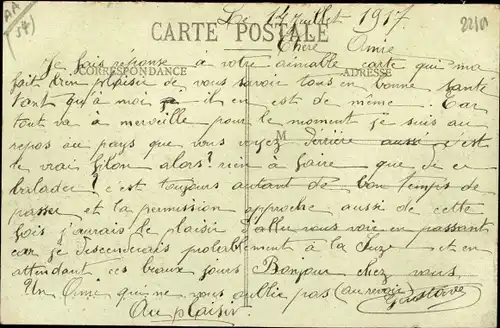 AA
CARTE POSTALE
Le 17 juillet 1917
Chère Amie
CORRESPONDANCE
ADRESSE
M
Je fais réponse à votre aimable carte qui m'a
fait bien plaisir de vous savoir tous en bonne santé
Tant qu'à moi il en est de même. Car
tout va à merveille pour le moment je suis au
repos au pays que vous voyez derrière aussi c'est
le vrai filon alors! rien à faire que de ce
balader! c'est toujours autant de bon temps de
passer et la permission approche aussi de cette
fois j'aurais le plaisir d'aller vous voir en passant
car je descendrais probablement à la Suze et en
attendant ces beaux jours Bonjour chez vous.
Un Ami qui ne vous oublie pas (au revoir) Gustave
Au plaisir.